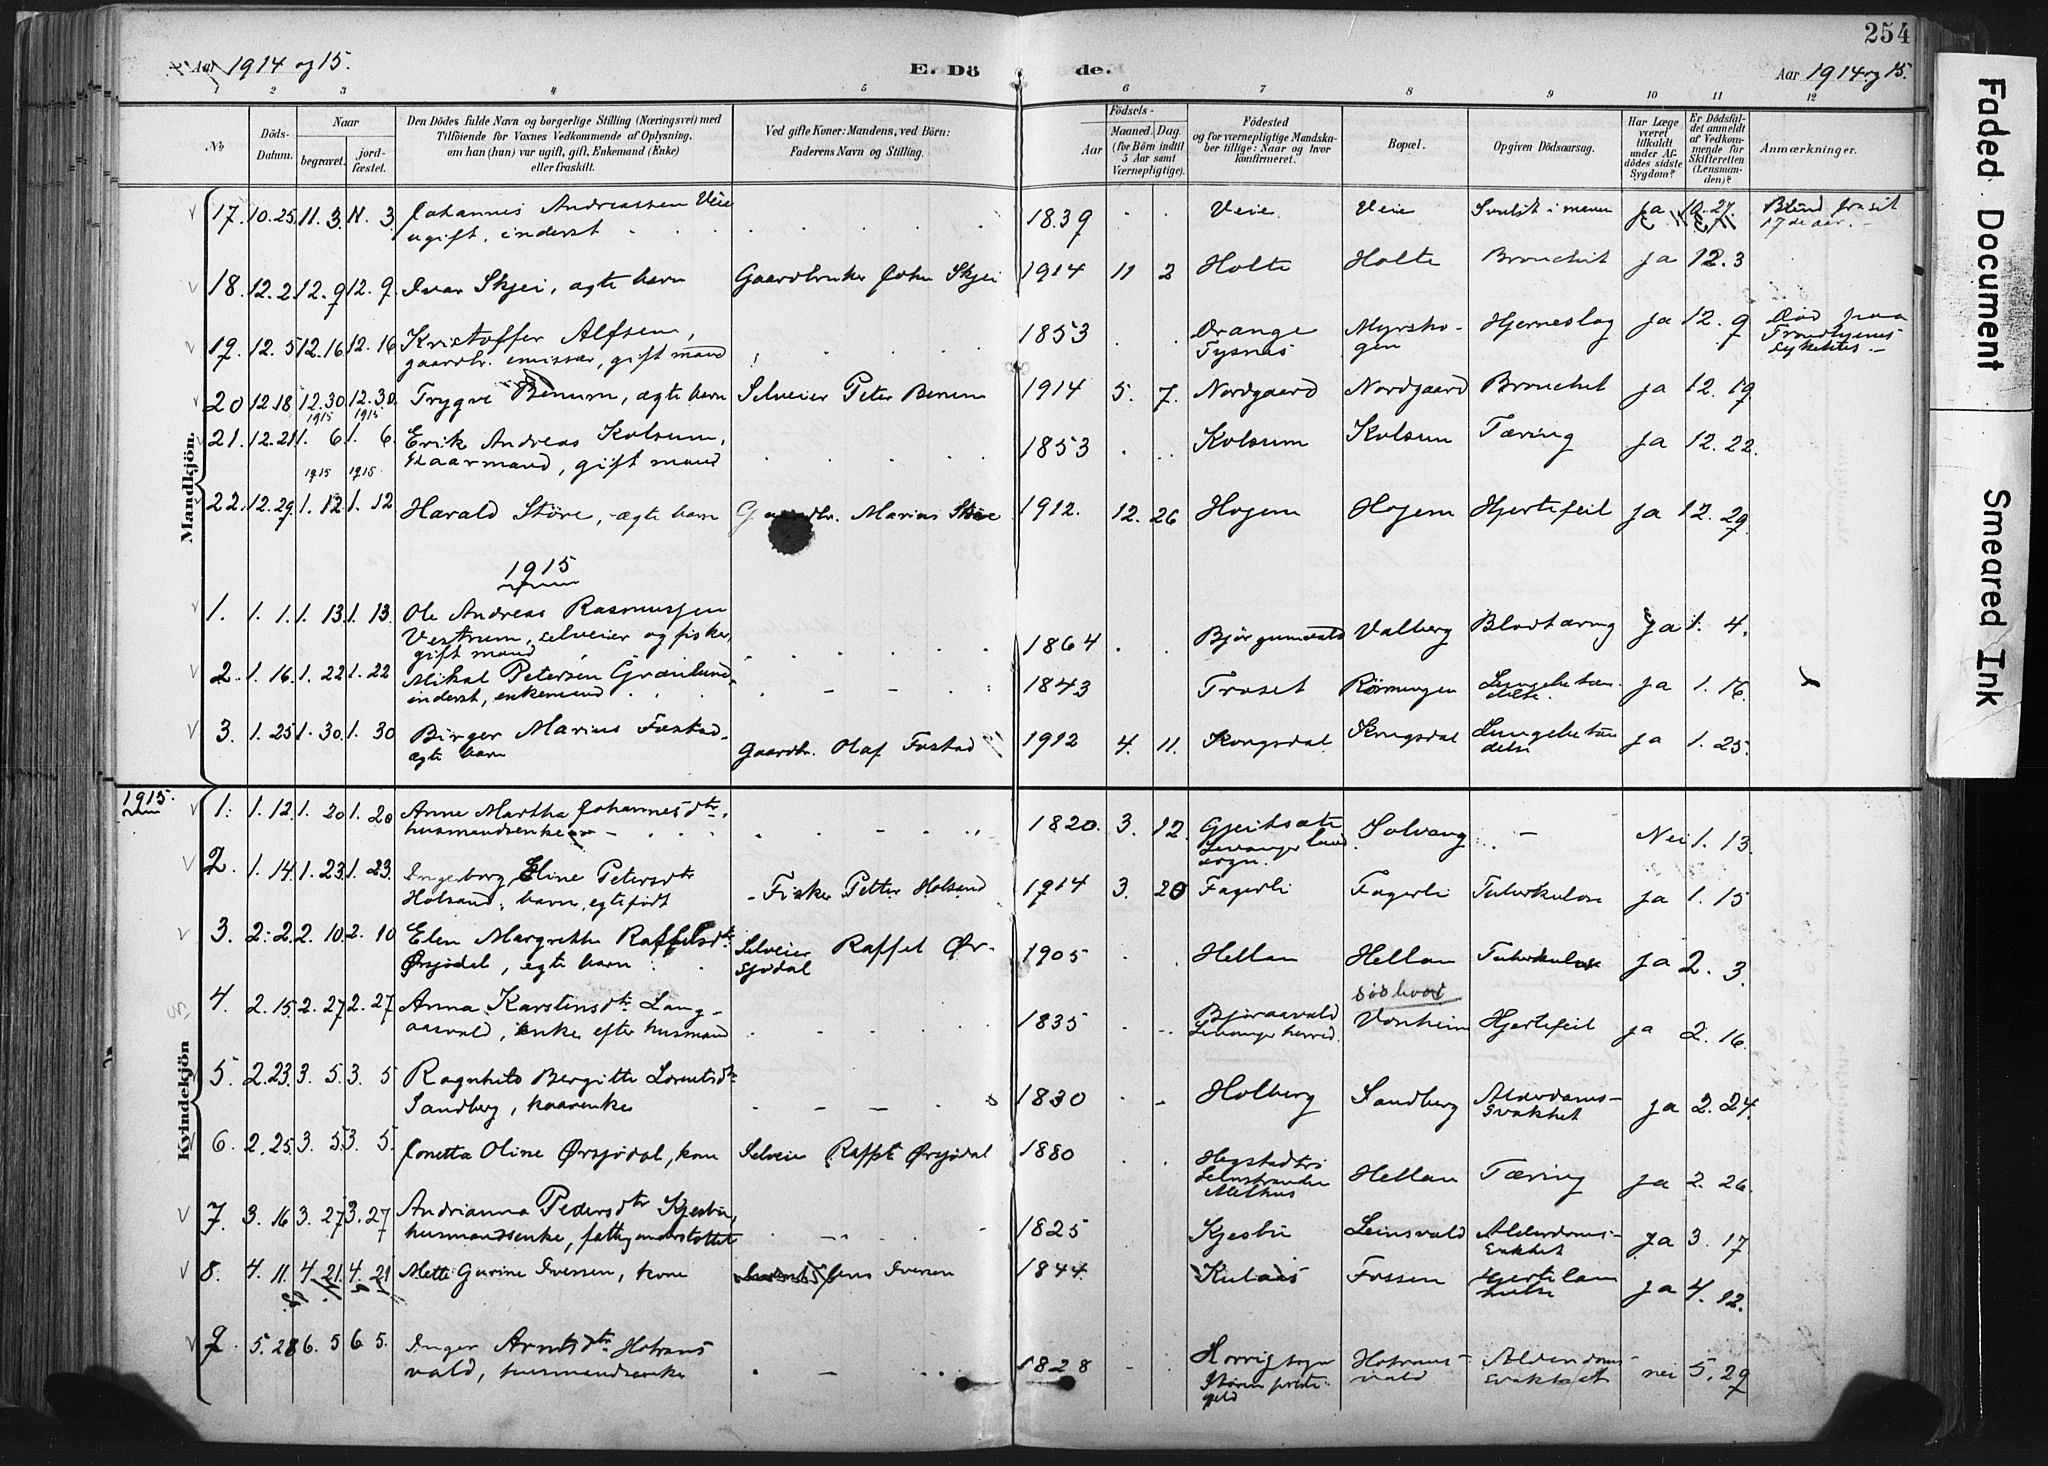 254
Aar 1914 og 15.
E. Dö de.
Aar 1914 og 15.
1 2 3 4 5 6 7 8 9 10 11 12
No
Döds-Datum.
Naar
begravet.
jord-fæstet.
Den Dödes fulde Navn og borgerlige Stilling (Næringsvei) med
Tilföiende for Voxnes Vedkommende af Oplysning,
om han (hun) var ugift, gift, Enkemand (Enke)
eller fraskilt.
Ved gifte Koner: Mandens, ved Börn:
Faderens Navn og Stilling.
Födsels-
Aar
Maaned. Dag.
(for Börn indtil
5 Aar samt
Værnepligtige).
Födested
og for værnepligtige Mandska-
ber tillige: Naar og hvor
konfirmeret.
Bopæl.
Opgiven Dödsaarsag.
Har Læge
været
tilkaldt
under Af-
dödes sidste
Sygdom?
Er Dödsfal-
det anmeldt
af Vedkom-
mende for
Skifteretten
(Lensman-
den)?
Anmærkninger.
Mandkjön.
17. 10. 25. 11. 3. 11. 3 Johannes Andreassen Veie
ugift, inderst 1839 Veie Veie Svulst i maven Ja 10. 27. Blind fra sit
17de aar.
18. 12. 2. 12. 9. 12. 9. Ivar Skjei, ægte barn Gaardbruker John Skjei 1914 11 2 Holte Holte Bronchit ja 12. 3
19. 12. 5 12. 16 12. 16 Kristoffer Alfsen,
gaardbr. emissær, gift mand 1853 Drange
Tysnæs Myrsho-
gen Hjerneslag ja 12. 9 Død paa
Trondhjems
sykehus
20 12. 18 12. 30 12. 30. Trygve Benum, ægte barn Selveier Peter Benum 1914 5. 7. Nordgaard Nordgaard Bronchit ja 12. 19
1915 1915
21. 12. 21 1. 6. 1. 6. Erik Andreas Kolsum,
kaarmand, gift mand 1853 Kolsum Kolsum Tæring ja 12. 22.
1915 1915
22. 12. 29. 1. 12 1. 12 Harald Støre, ægte barn Gaardbr. Marius Støre 1912. 12. 26 Hojem Hojem Hjertefeil ja 12. 29.
1915
1. 1. 1. 1. 13. 1. 13. Ole Andreas Rasmussen
Vestrum, selveier og fisker,
gift mand 1864 Bjørgumvald Valberg Blodtæring ja 1. 4.
2. 1. 16. 1. 22 1. 22 Mikal Petersen Grønlund,
inderst, enkemand 1843 Troset Lungebetæn-
delse. ja 1. 16.
3. 1. 25 1. 30. 1. 30 Birger Marius Fostad,
ægte barn Gaardbr. Olaf Fostad 1912 4. 11. Kongsdal Kongsdal Lungebetæn
delse ja 1. 25.
1915.
Kvindekjön
1. 1. 12. 1. 20 1. 20 Anne Martha Johannesdtr.
husmandsenke 1820. 3. 12. Gjeitsæte
Levanger land
sogn. Solvang Nei 1. 13.
2 1. 14. 1. 23. 1. 23. Ingeborg Eline Petersdtr
Holsand, barn, egtefødt Fisker Petter Holsand 1914 3. 20 Fagerli Fagerli Tuberkulose ja 1. 15
3. 2. 2. 2. 10 2. 10 Elen Margrethe Raffelsdtr
Ørsjødal, egte barn Selveier Raffel Ør-
sjødal 1905 Hellan Hellan Tuberkulose ja 2. 3.
4. 2. 15. 2. 27 2. 27 Anna Karstensdtr Lang-
aasvald, enke efter husmand 1835 Bjøraavald
Levanger herred Vonheim Hjertefeil ja 2. 16.
5. 2. 23. 3. 5. 3. 5 Ragnhild Bergitte Lorentsdtr
Sandberg, kaarenke 1830 Holberg Sandberg Alderdoms-
svakhet ja 2. 24.
6. 2. 25. 3. 5. 3. 5. Jonetta Oline Ørsjødal, kone Selveier Raffel Ørsjødal 1880 Leinstranden
Melhus Hellan Tæring ja 2. 26.
7. 3. 16 3. 27 3. 27 Andrianna Pedersdtr Kjesbu,
husmandsenke, fattigunderstøttet 1825 Kjesbu Leinsvald Alderdoms-
svakhet ja 3. 17
8. 4. 11. 4. 21. 4. 21 Mette Gurine Iversen, kone Jens Iversen 1844. Kulaas Fossen Hjertelam
melse ja 4. 12.
9 5. 28 6. 5 6 5. Inger Arntsdtr Hotrans
vald, husmandsenke 1828 Horrig sogn
Støren preste-
gjeld Hotrans-
vald Alderdoms-
svakhet nei 5. 29
Faded Document
Smeared Ink